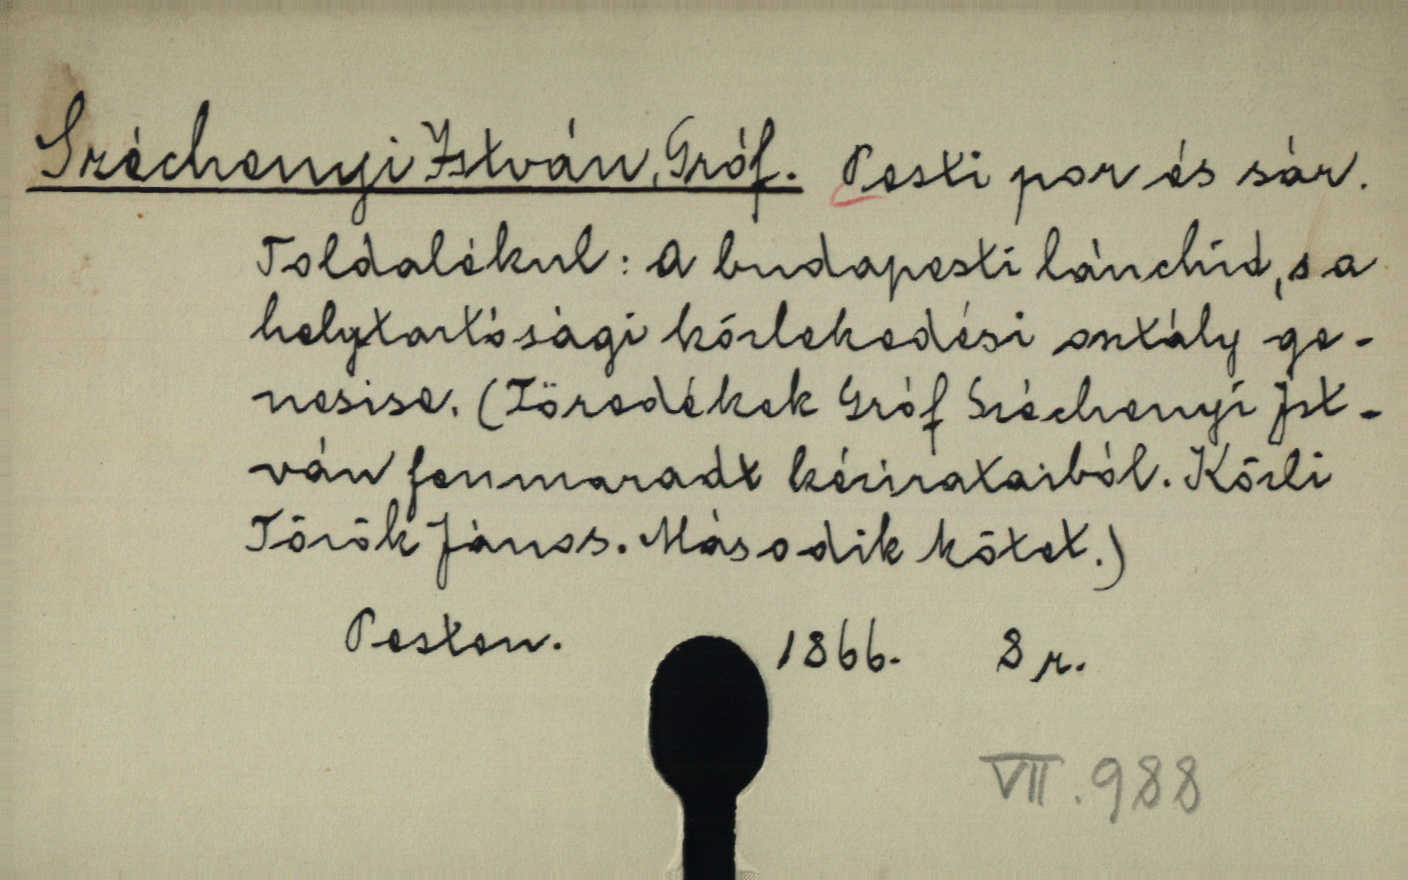 Széchenyi István, Gróf. Pesti por és sár.
Toldalékul: A budapesti lánchíd, s a
helytartósági közlekedési osztály ge-
nesise. (Töredékek Gróf Széchenyi Ist-
ván fenmaradt kézirataiból. Közli
Török János. Második kötet.)
Pesten. 1866. 8 r.
VII. 988